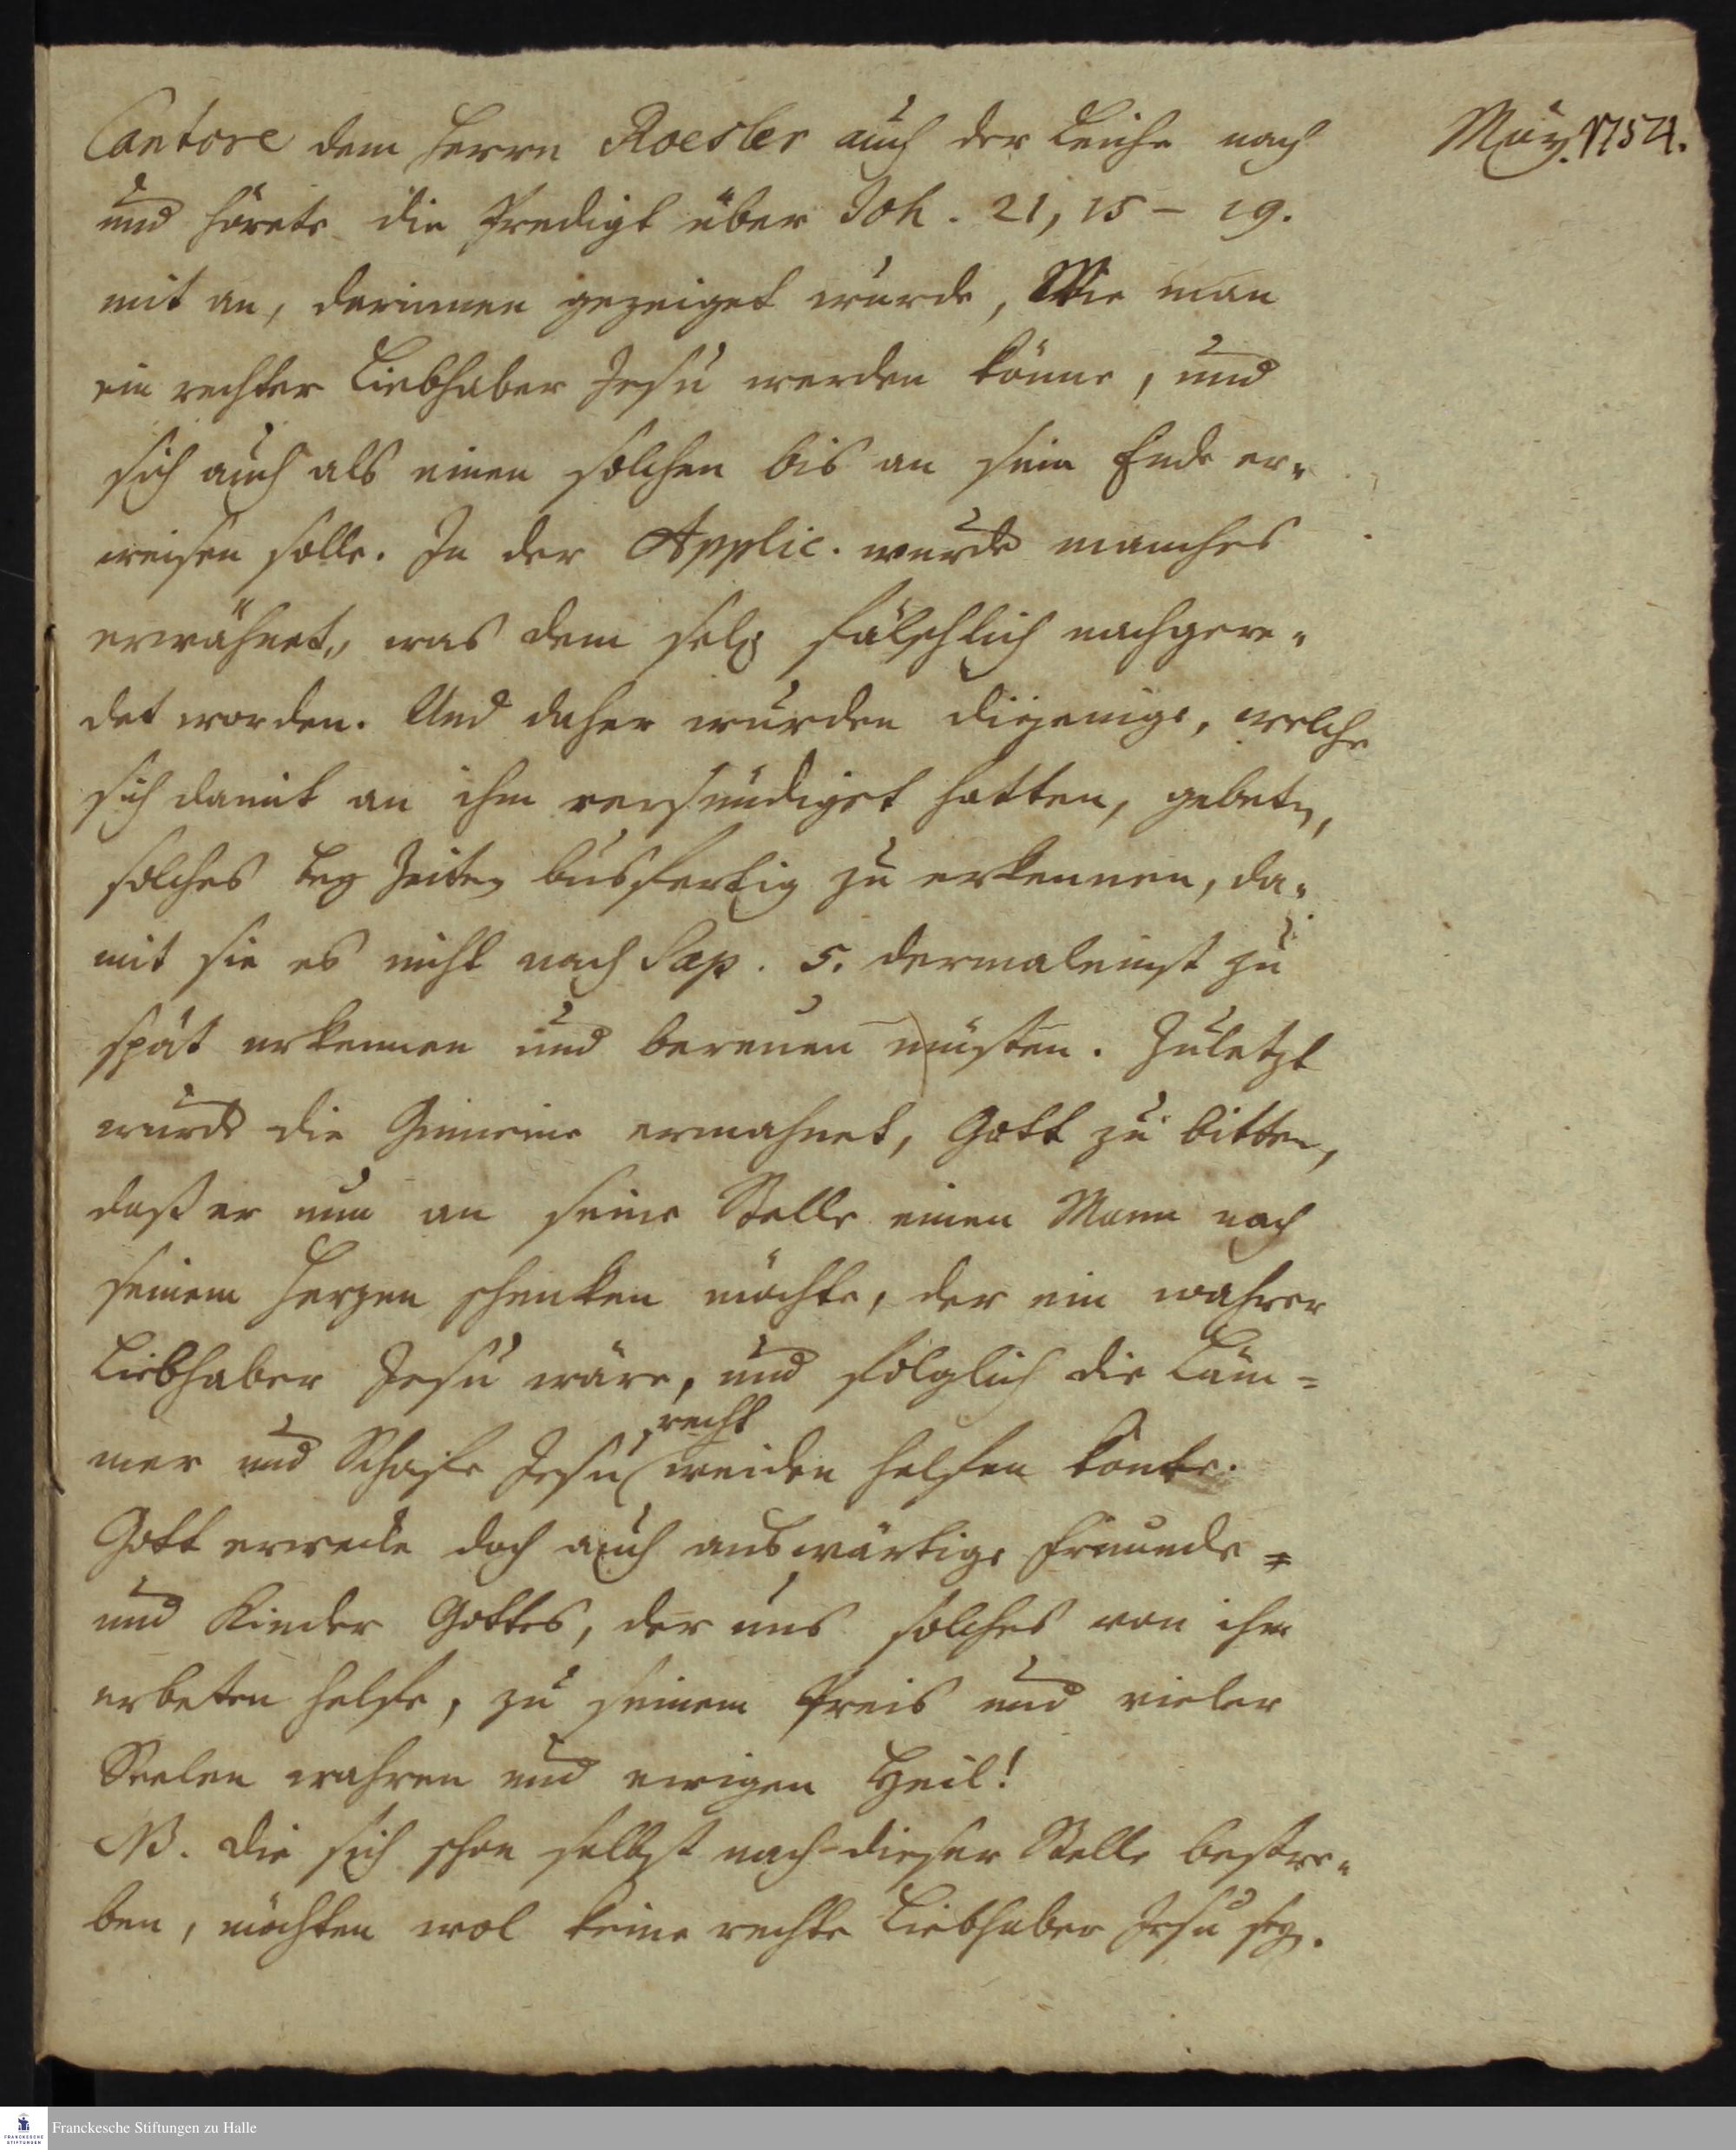 Cantore dem Herrn Roesler auch der Leiche nach
May. 1754.
und hörete die Predigt über Joh. 21, 15 - 19.
mit an, darinnen gezeiget wurde, Wie man
ein rechter Liebhaber Jesu werden könne, und
sich auch als einen solchen bis an sein Ende er-
weisen solle. In der Applic. wurde manches
erwähnet, was dem sel. fälschlich nachgere-
det worden. Und daher wurden diejenige, welche
sich damit an ihm versündiget hatten, gebeten,
solches bey Zeiten busfertig zu erkennen, da-
mit sie es nicht nach Sap. 5. dermaleinst zu
spät erkennen und bereuen müsten. Zuletzt
wurde die Gemeine ermahnet, Gott zu bitten,
daß er nun an seine Stelle einen Mann nach
seinem Herzen schenken möchte, der ein wahrer
Liebhaber Jesu wäre, und folglich die Läm=
mer und Schafe Jesu recht weiden helfen könte.
Gott erwecke doch auch auswärtige Freunde=
und Kinder Gottes, der uns solches von ihm
erbeten helfe, zu seinem Preis und vieler
Seelen wahren und ewigen Heil!
NB. die sich schon selbst nach dieser Stelle bestre-
ben, möchten wol keine rechte Liebhaber Jesu sey.
Franckesche Stiftungen zu Halle
FRANCKESCHE
STIFTUNGEN